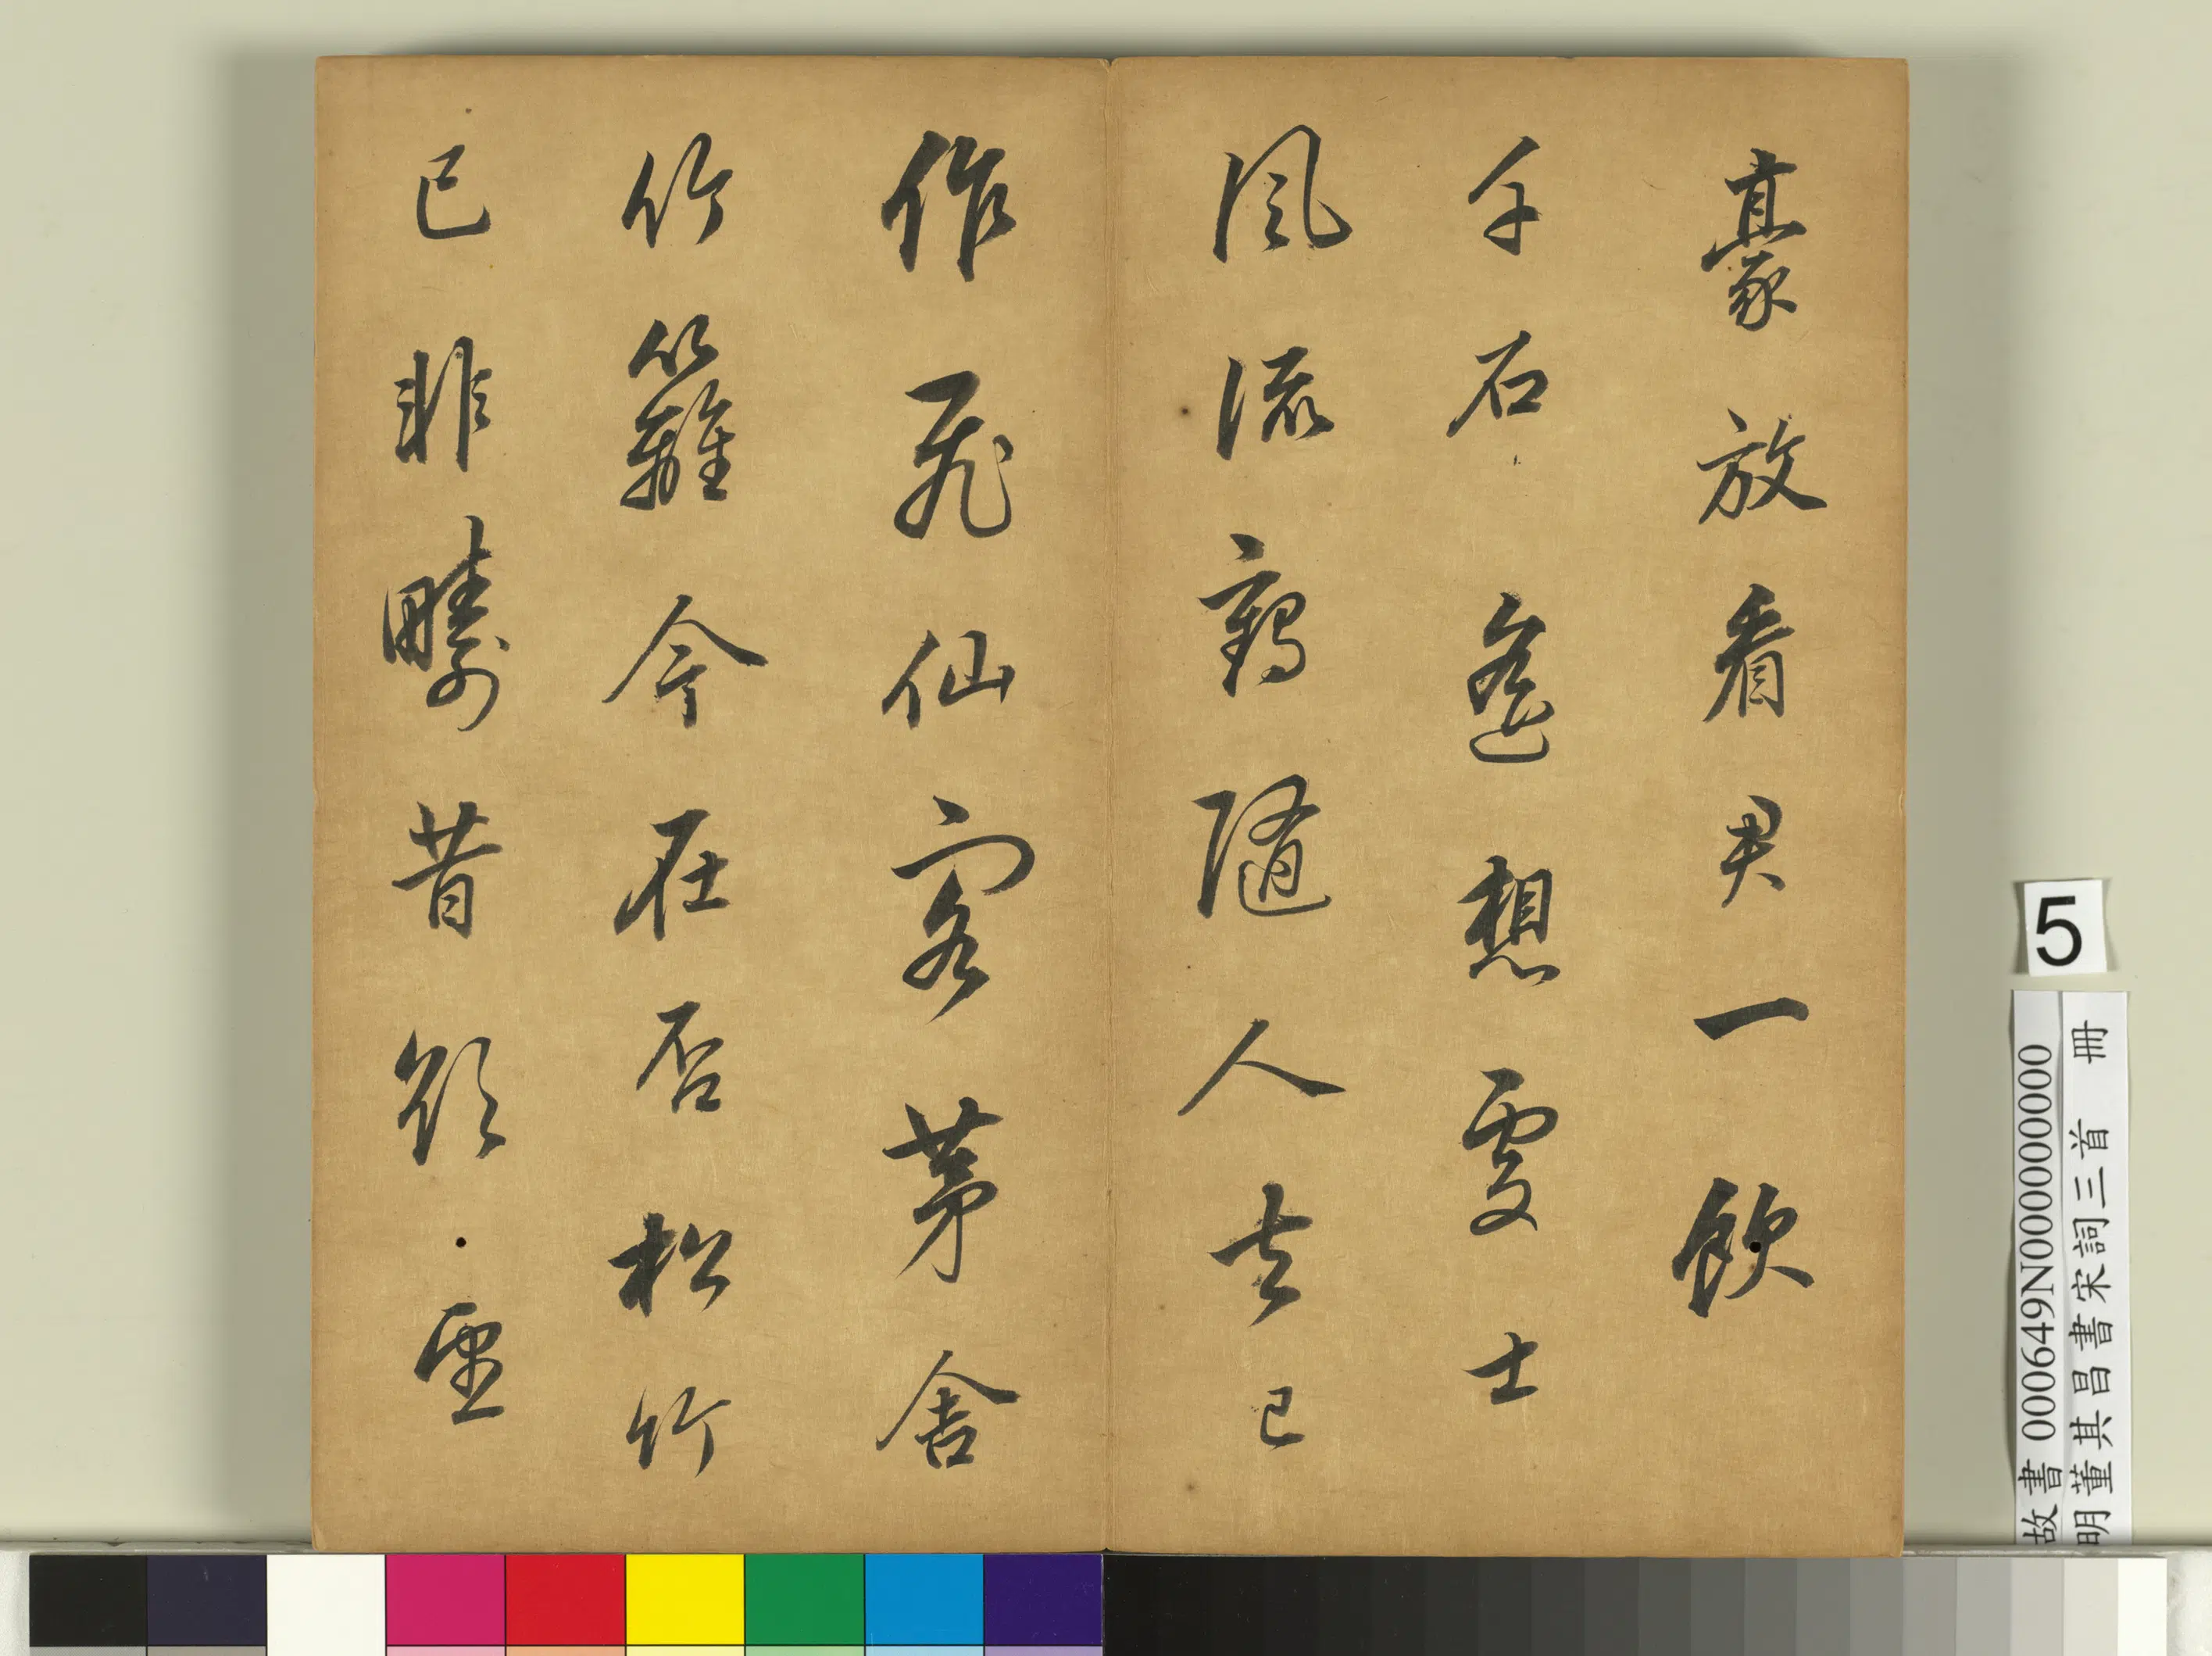 豪放看君一飲
千石遙想處士
風流鶴隨人去已
作飛仙客茅舍
竹籬今在否松竹
已非疇昔欲望
5
故書 000649N000000000
明董其昌書宋詞三首 冊